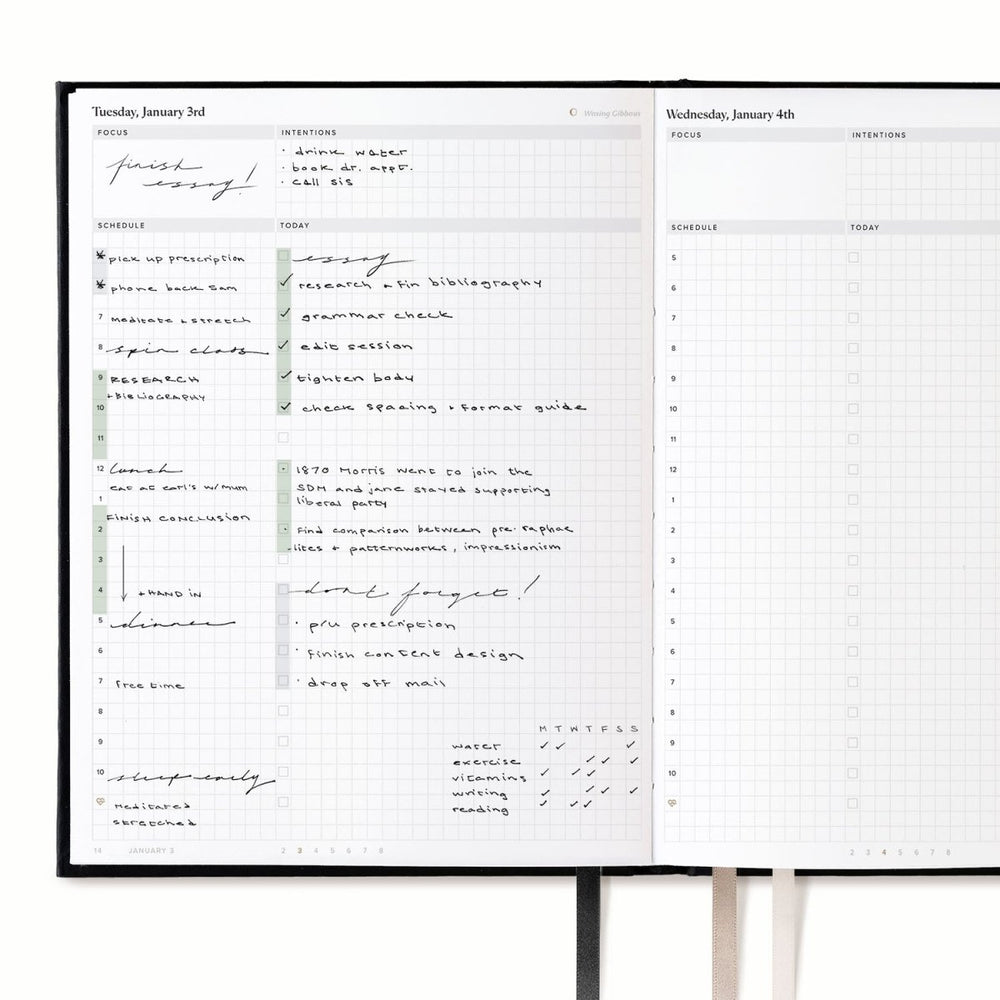 Tuesday, January 3rd
Waxing Gibbous
FOCUS
INTENTIONS
finish
essay!
· drink water
· book dr. appt.
· call sis
SCHEDULE
TODAY
* pick up prescription
* phone back Sam
7 meditate + stretch
8 spin class
9 RESEARCH
+ BIBLIOGRAPHY
10
11
12 lunch
eat at earl's w/ mum
1
FINISH CONCLUSION
2
3
4 + HAND IN
5 dinner
6
7 free time
8
9
10 sleep early
meditated
stretched
essay
✓ research + fin bibliography
✓ grammar check
✓ edit session
✓ tighten body
✓ check spacing + format guide
· 1870 Morris went to join the
SDM and jane stayed supporting
liberal party
· Find comparison between pre-raphae
-lites + patternworks, impressionism
dont forget!
· p/u prescription
· finish content design
· drop off mail
M T W T F S S
water ✓ ✓ ✓
exercise ✓ ✓ ✓
vitamins ✓ ✓ ✓
writing ✓ ✓ ✓ ✓
reading ✓ ✓ ✓
14 JANUARY 3
2 3 4 5 6 7 8
Wednesday, January 4th
FOCUS
INTENTIONS
SCHEDULE
TODAY
5
6
7
8
9
10
11
12
1
2
3
4
5
6
7
8
9
10
2 3 4 5 6 7 8